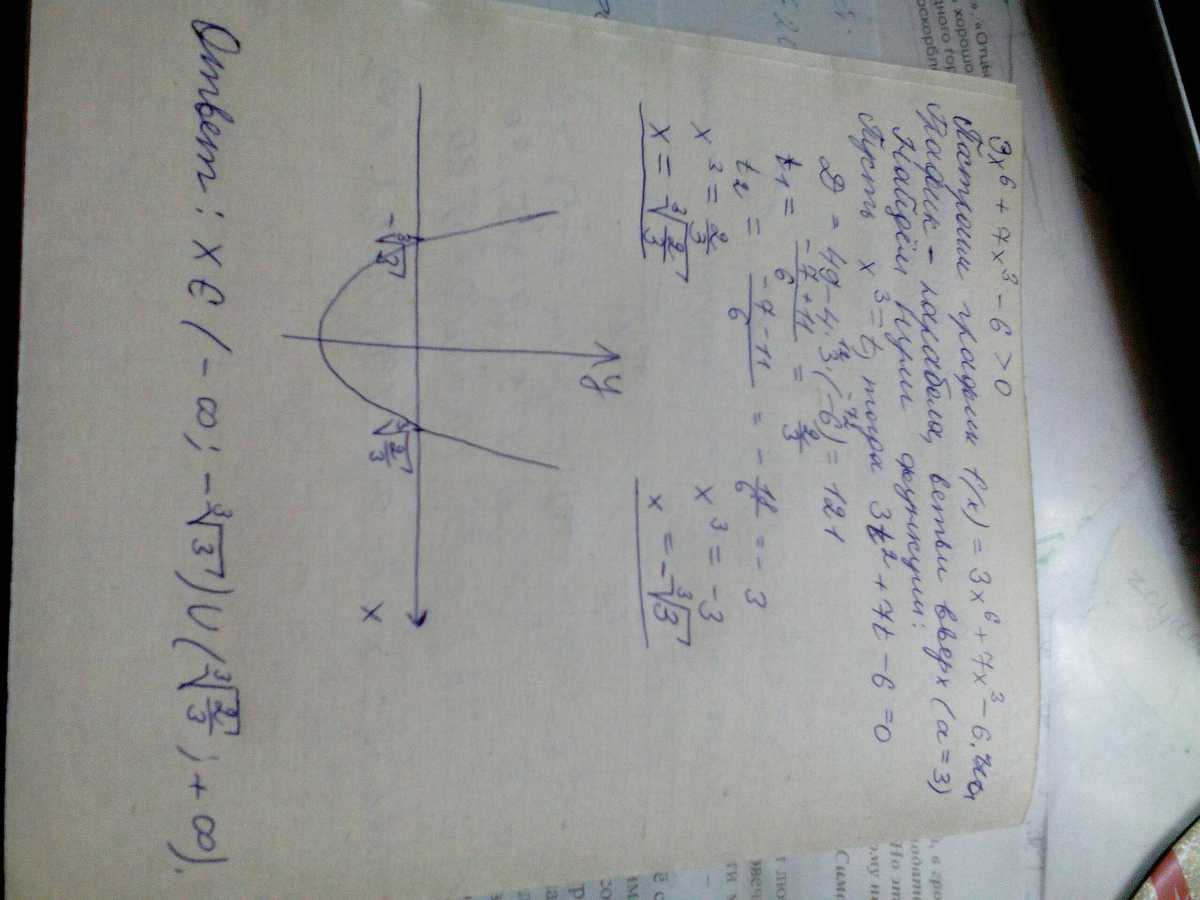 3x⁶ + 7x³ - 6 > 0
Построим график f(x) = 3x⁶ + 7x³ - 6.
График - парабола, ветви вверх (a = 3)
Найдём нули функции:
Пусть x³ = t, тогда 3t² + 7t - 6 = 0
D = 49 - 4·3·(-6) = 121
t₁ = (-7 + 11)/6 = 2/3
t₂ = (-7 - 11)/6 = -18/6 = -3
x³ = 2/3 x³ = -3
x = ∛(2/3) x = -∛3
y
-∛3 ∛(2/3) x
Ответ: x ∈ (-∞; -∛3) ∪ (∛(2/3); +∞).
«Отцы
хорошо
оскорбл
Симв